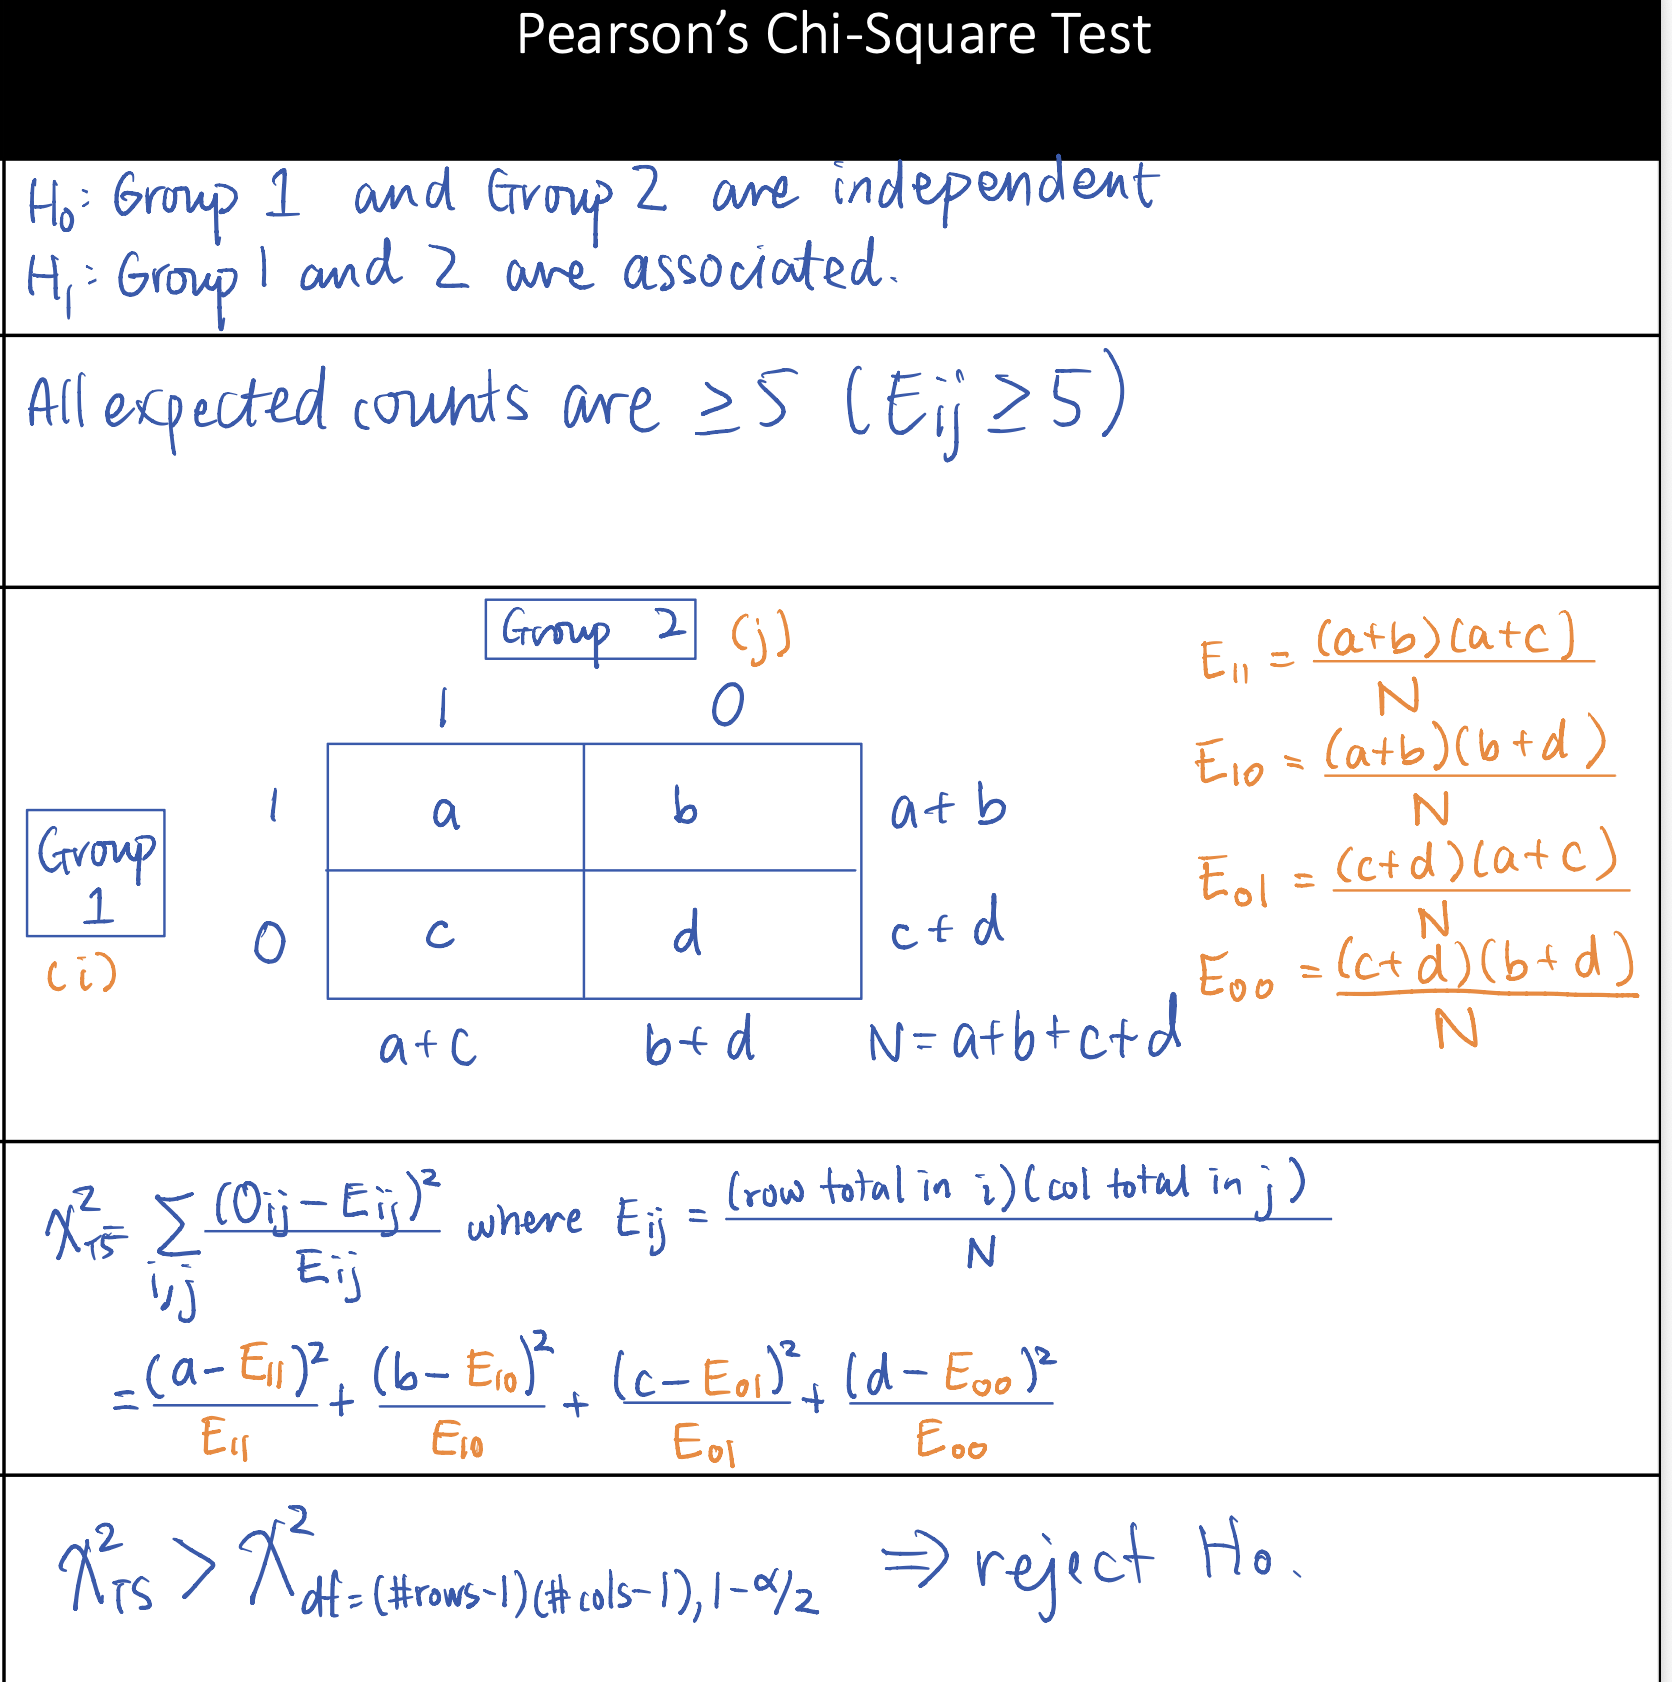 Pearson's Chi-Square Test
H₀: Group 1 and Group 2 are independent
H₁: Group 1 and 2 are associated.
All expected counts are ≥5 (Eij ≥5)
Group 2 (j)
1 0
1 a b a+b
Group 1
(i)
0 c d c+d
a+c b+d N=a+b+c+d
E₁₁ = (a+b)(a+c) / N
E₁₀ = (a+b)(b+d) / N
E₀₁ = (c+d)(a+c) / N
E₀₀ = (c+d)(b+d) / N
χ²TS = Σi,j (Oij-Eij)² / Eij where Eij = (row total in i)(col total in j) / N
= (a-E₁₁)² / E₁₁ + (b-E₁₀)² / E₁₀ + (c-E₀₁)² / E₀₁ + (d-E₀₀)² / E₀₀
χ²TS > χ²df=(#rows-1)(#cols-1), 1-α/2 ⇒ reject H₀.